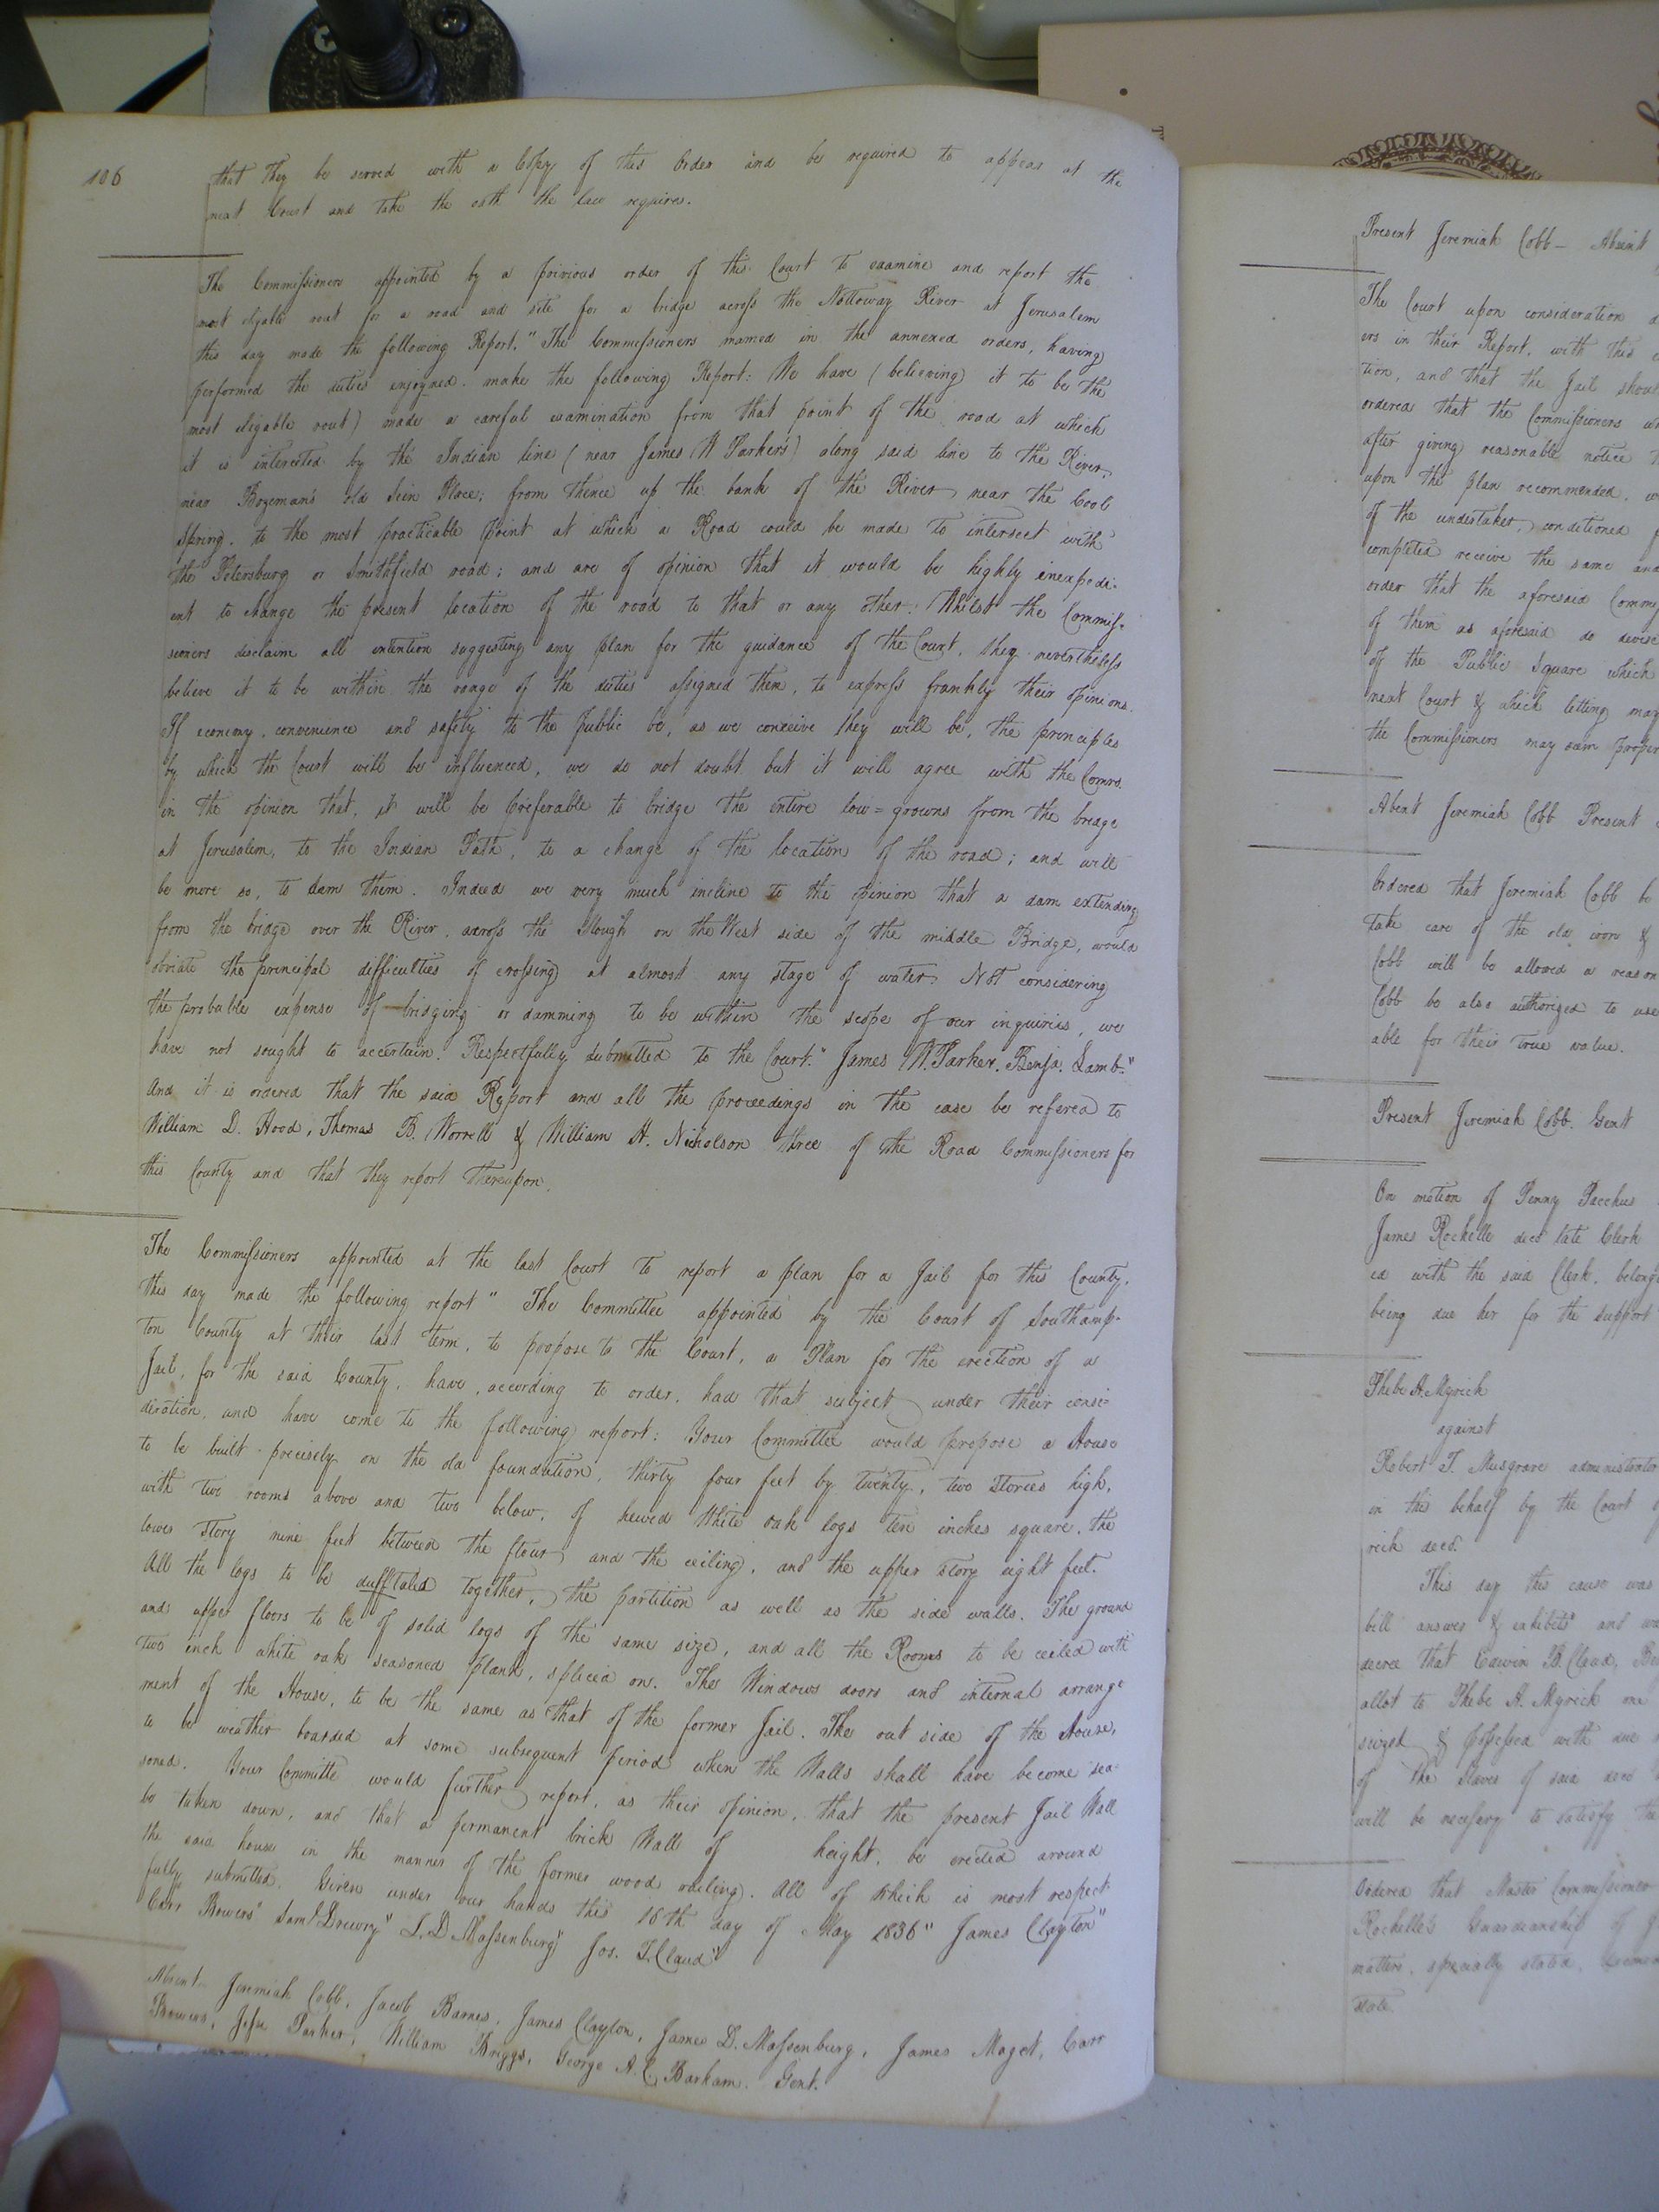 106
that they be served with a Copy of this Order and be required to appear at the
next Court and take the oath the law requires.
The Commissioners appointed by a previous order of this Court to examine and report the
most eligable rout for a road and site for a bridge across the Nottoway River at Jerusalem
this day made the following Report. " The Commissioners named in the annexed orders, having
performed the duties enjoyned. make the following Report: We have (believing it to be the
most eligable rout) made a careful examination from that point of the road at which
it is intersected by the Indian line (near James W Parker's) along said line to the River,
near Bozeman's old Sein Place; from thence up the bank of the River near the Cool
Spring. to the most practicable point at which a Road could be made to intersect with
the Petersburg or Smithfield road; and are of opinion that it would be highly inexpedi-
ent to change the present location of the road to that or any other. Whilst the Commis-
sioners disclaim all intention suggesting any plan for the guidance of the Court, they nevertheless
believe it to be within the range of the duties assigned them, to express frankly their opinions.
If economy, convenience and safety to the public be, as we conceive they will be, the principles
by which the Court will be influenced, we do not doubt but it will agree with the Comrs.
in the opinion that, it will be preferable to bridge the entire low=grouns from the bridge
at Jerusalem, to the Indian Path, to a change of the location of the road; and will
be more so, to dam them. Indeed we very much incline to the opinion that a dam extending
from the bridge over the River, across the Slough on the West side of the middle Bridge, would
obviate the principal difficulties of crossing at almost any stage of water. Not considering
the probable expense of bridging or damming to be within the scope of our inquiries, we
have not sought to accertain. Respectfully submitted to the Court." James W. Parker. Benja. Lamb."
And it is ordered that the said Report and all the proceedings in the case be refered to
William D. Hood, Thomas B. Worrell & William H. Nicholson three of the Road Commissioners for
this County and that they report thereupon.
The Commissioners appointed at the last Court to report a plan for a Jail for this County.
this day made the following report " The Committee appointed by the Court of Southamp-
ton County at their last term, to propose to the Court, a Plan for the erection of a
Jail, for the said County, have, according to order, had that subject under their consi-
deration, and have come to the following report: Your Committee would propose a House
to be built precisely on the old foundation, thirty four feet by twenty, two stories high,
with two rooms above and two below, of hewed White oak logs ten inches square, the
lower story nine feet between the floor and the ceiling, and the upper story eight feet.
All the logs to be dufftaled together, the partition as well as the side walls. The ground
and upper floors to be of solid logs of the same size, and all the Rooms to be ceiled with
two inch white oak seasoned plank, spliced on. The Windows doors and internal arrange
ment of the House, to be the same as that of the former Jail. The out side of the House,
to be weather boarded at some subsequent period when the Walls shall have become sea-
soned. Your Committe would further report, as their opinion, that the present Jail Wall
be taken down, and that a permanent brick Wall of height, be erected around
the said house in the manner of the former wood railing. All of which is most respect-
fully submitted. Given under our hands this 16th day of May 1836" James Clayton"
Carr Bowers" Saml Drewry" J. D Massenburg" Jos. T. Claud"
Absent Jeremiah Cobb, Jacob Barnes, James Clayton, James D. Massenburg, James Maget, Carr
Bowers, Jesse Parker, William Briggs, George A. C. Barham. Gent.
Present Jeremiah Cobb - Absent
The Court upon consideration
ers in their Report, with this
tion, and that the Jail
ordered that the Commissioners
after giving reasonable notice
upon the plan recommended.
of the undertaker, conditioned
completed receive the same and
order that the aforesaid
of them as aforesaid do
of the Public Square which
next Court & which letting may
the Commissioners may
Absent Jeremiah Cobb Present
Ordered that Jeremiah Cobb be
take care of the old iron &
Cobb will be allowed a
Cobb be also authorized to use
able for their true value.
Present Jeremiah Cobb. Gent
On motion of Penny Bacchus
James Rochelle decd late Clerk
ed with the said Clerk,
being due her for the support
Phebe A. Myrick
against
Robert T. Musgrave
in this behalf by the Court
rick decd.
This day this cause was
bill answer & exhibits and
decree that Edwin B. Claud,
allot to Phebe A. Myrick one
seized & possessed with
of the Slaves of said decd
will be necessary to satisfy
Ordered that Master Commissioner
Rochelle's Guardianship of
matters, specially stated,
state.